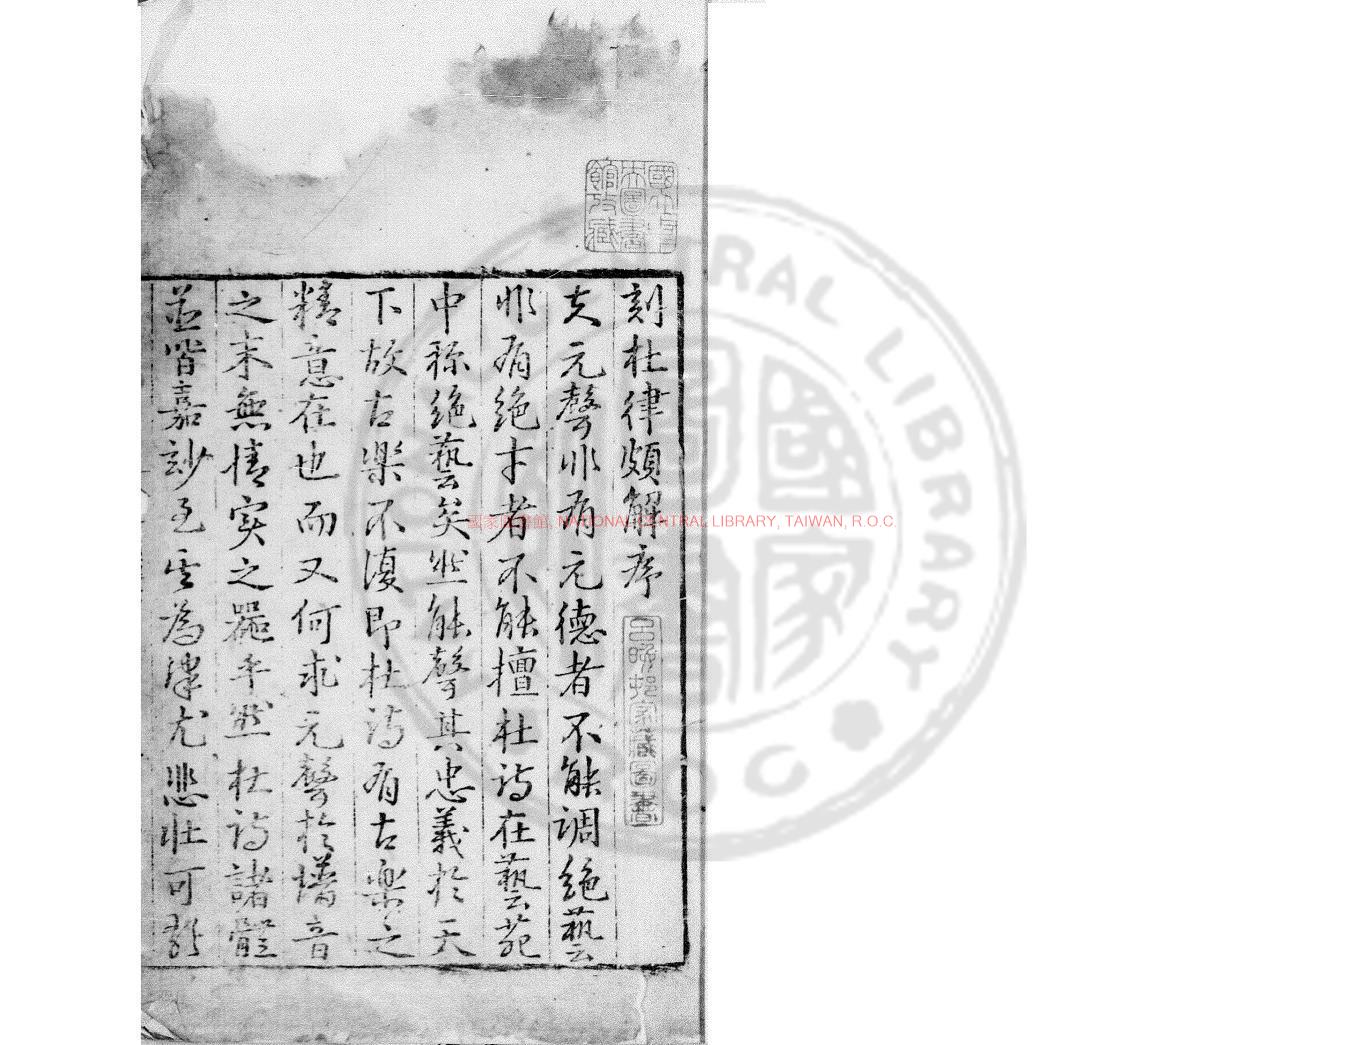 刻杜律頗解序
夫元聲非有元德者不能調絕藝
非有絕才者不能擅杜詩在藝苑
中稱絕藝矣然能聲其忠義於天
下故古樂不復即杜詩有古樂之
精意在也而又何求元聲於墦音
之末無情實之器乎然杜詩諸體
並皆嘉妙至其為律尤悲壯可
國立中央圖書館攷藏
呂晚邨家藏圖書
國家圖書館, NATIONAL CENTRAL LIBRARY, TAIWAN, R.O.C.